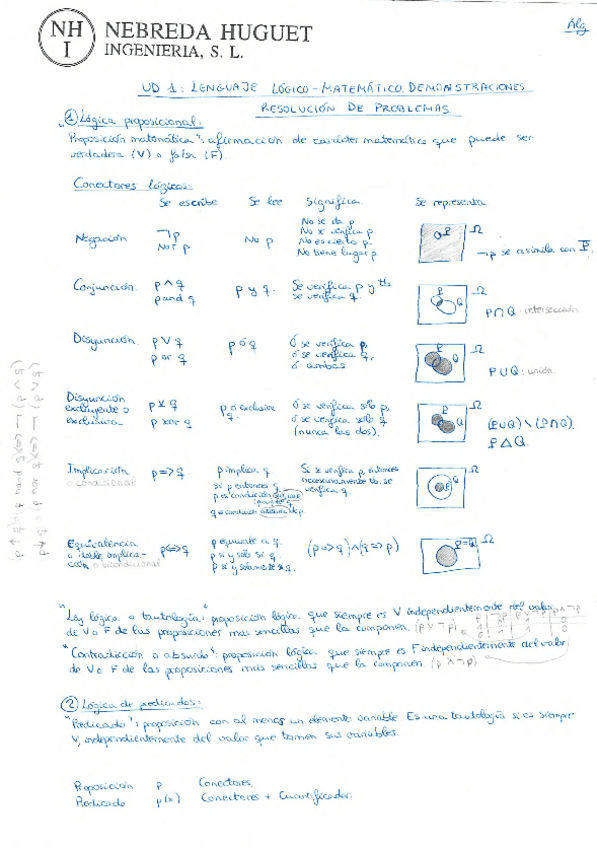 NH
I
NEBREDA HUGUET
INGENIERIA, S. L.
Alg
UD 1: LENGUAJE LÓGICO-MATEMÁTICO. DEMONSTRACIONES
RESOLUCIÓN DE PROBLEMAS
① Lógica proposicional:
"Proposición matemática": afirmación de carácter matemático que puede ser
verdadera (V) o falsa (F).
Conectores lógicos:
Se escribe Se lee Significa Se representa
Negación ¬p No p No se da p.
Not p No se verifica p.
No es cierta p.
No tiene lugar p.
P Ω
¬p se asimila con P̅.
Conjunción p ∧ q p y q. Se verifica p y tb
p and q se verifica q.
P Q Ω
P∩Q: intersección
Disyunción p ∨ q p ó q ó se verifica p,
p or q ó se verifica q,
ó ambas
Ω
P∪Q: unión
Disyunción
excluyente o
exclusiva p xor q
p ó exclusiva q.
ó se verifica sólo p,
ó se verifica solo q
(nunca las dos).
Ω
(P∪Q) \ (P∩Q)
P△Q.
Implicación
o condicional
p => q
p implica q
si p entonces q
p es condición
Si se verifica p, entonces
necesariamente tb. se
verifica q.
Ω
Equivalencia
o doble implica-
ción o bicondicional
p <=> q
p equivale a q.
p si y sólo si q.
p si y solamente si q.
(p => q) ∧ (q => p)
P=Q Ω
"Ley lógica o tautología": proposición lógica que siempre es V independientemente del valor
de V o F de las proposiciones mas sencillas que la componen. (p ∨ ¬p)
"Contradicción o absurdo": proposición lógica que siempre es F independientemente del valor
de V o F de las proposiciones más sencillas que la componen (p ∧ ¬p)
② Lógica de predicados:
"Predicado": proposición con al menos un elemento variable Es una tautología si es siempre
V, independientemente del valor que tomen sus variables.
Proposición p Conectores.
Predicado p(x) Conectores + Cuantificador.